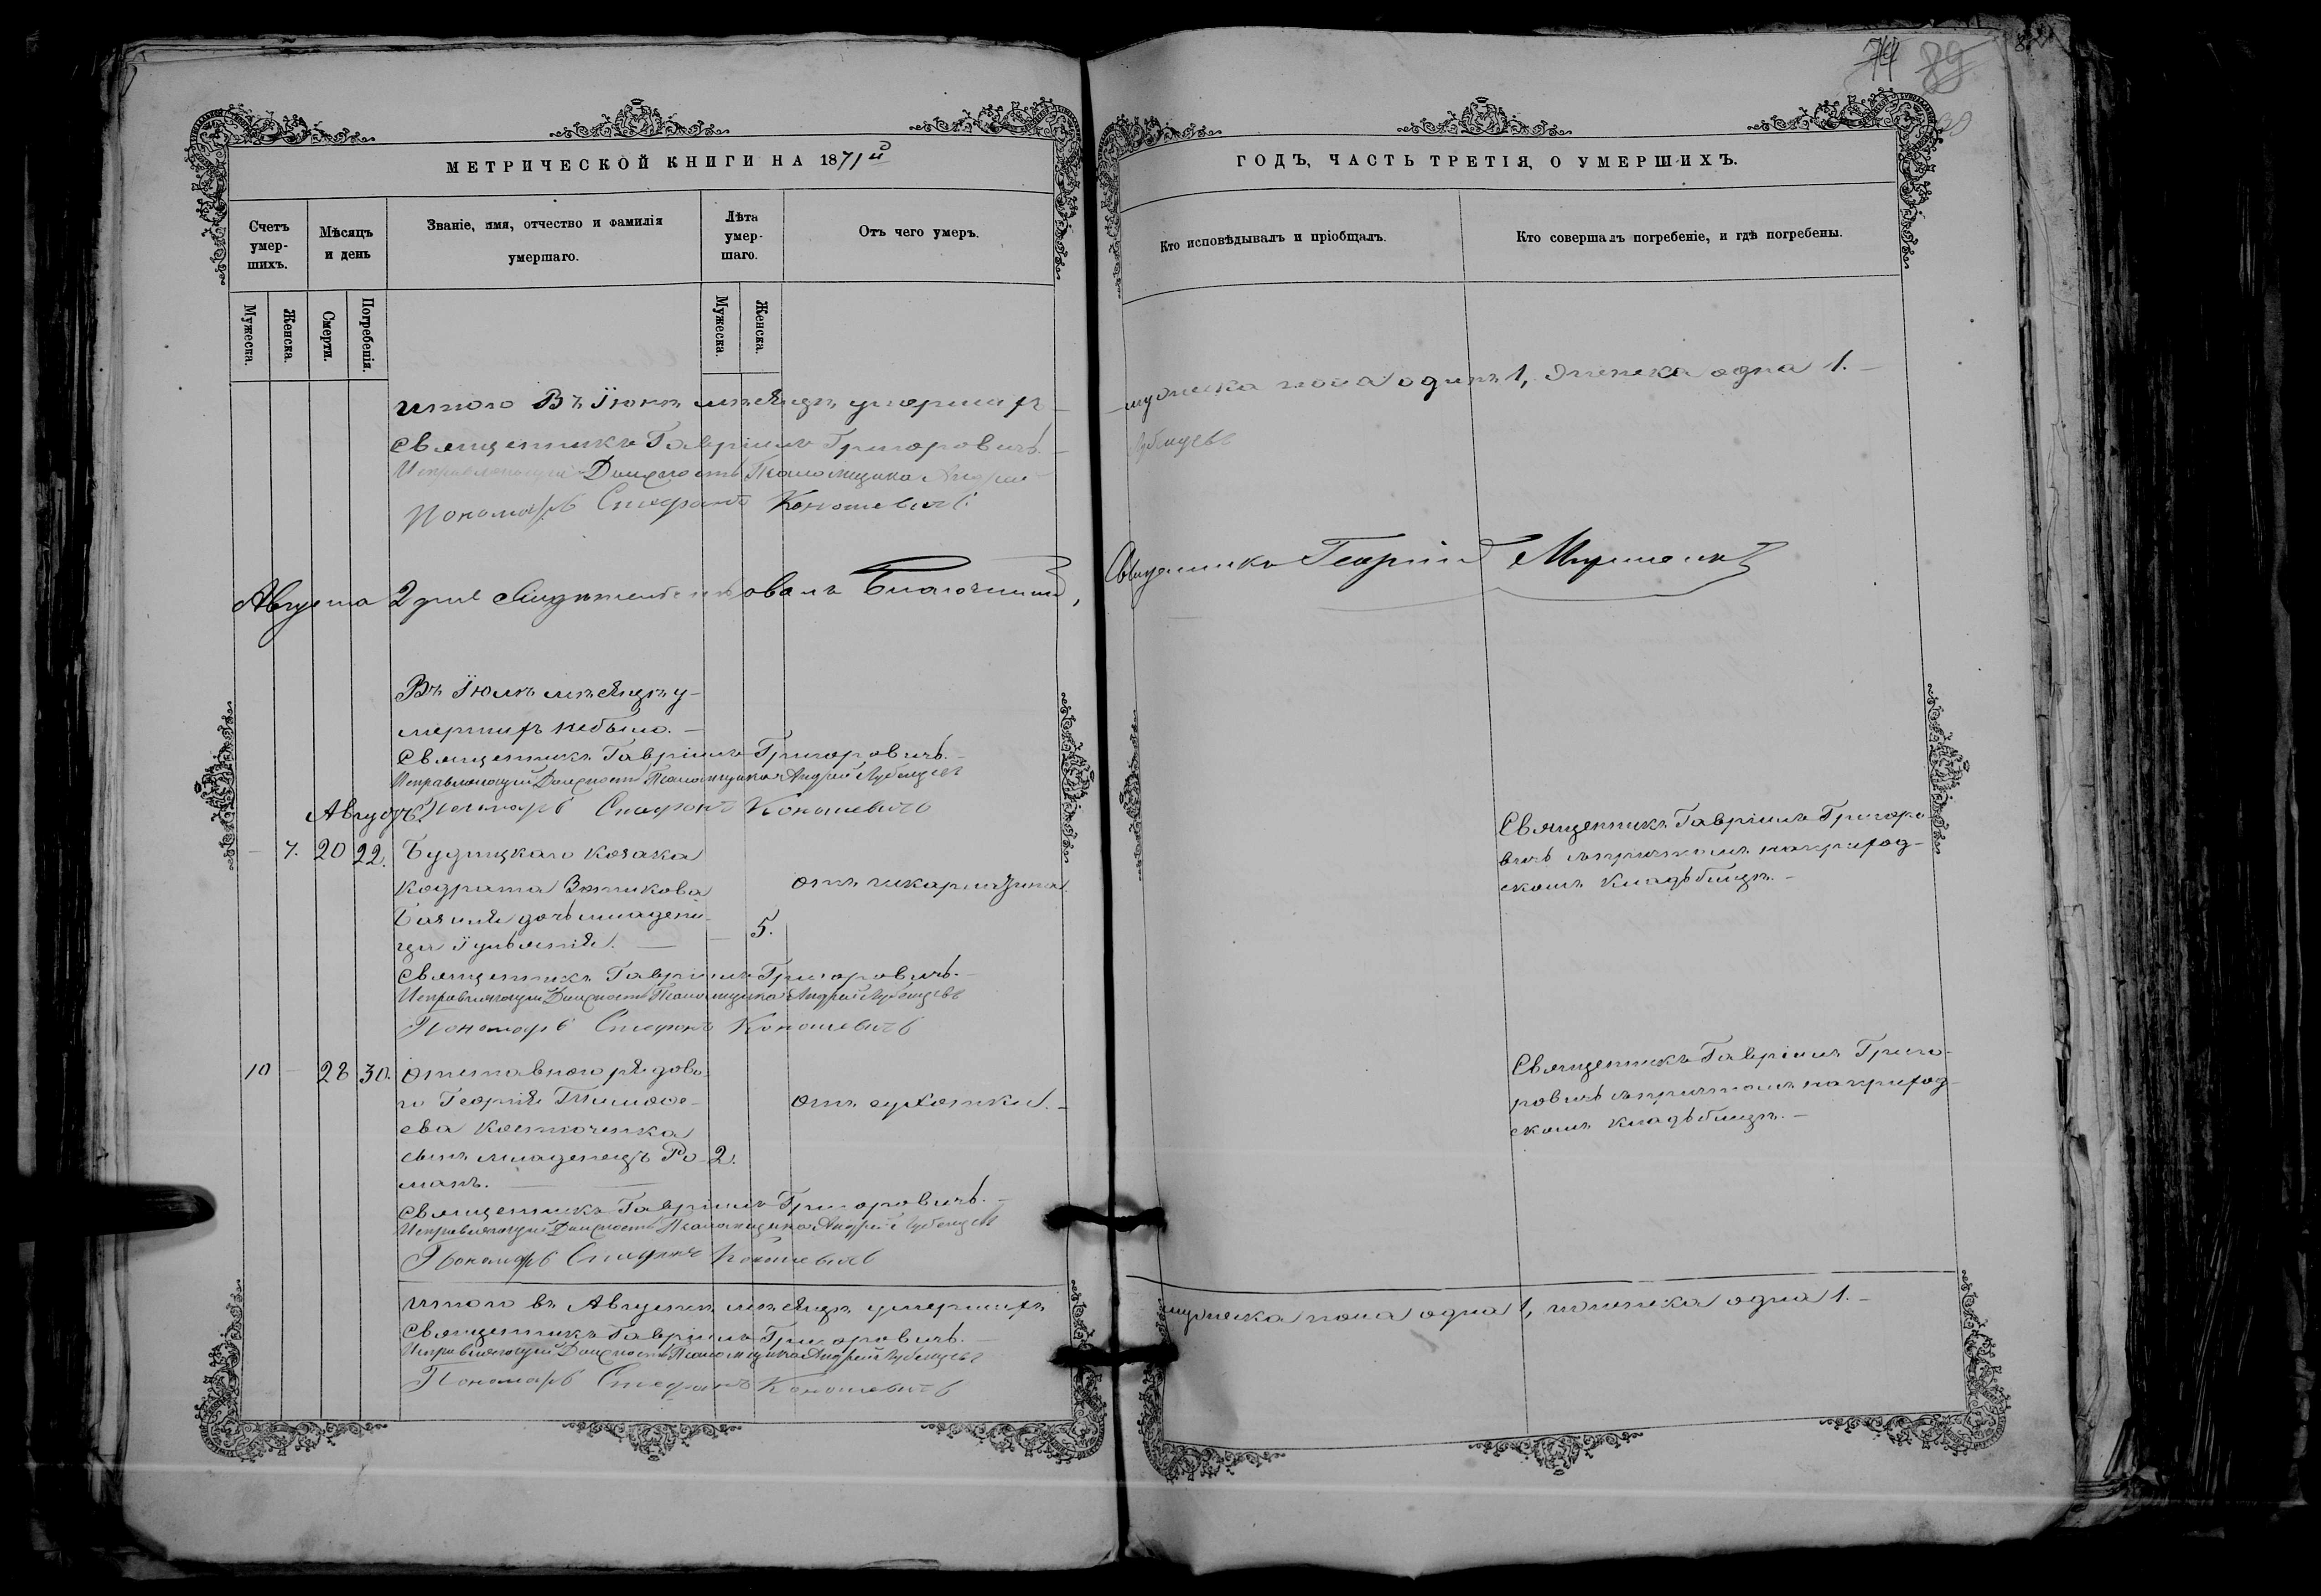 74 89
МЕТРИЧЕСКОЙ КНИГИ НА 1871й
ГОДЪ, ЧАСТЬ ТРЕТІЯ, О УМЕРШИХЪ.
Счетъ умер-
шихъ.
Мѣсяцъ
и день
Званіе, имя, отчество и фамилія
умершаго.
Лѣта
умер-
шаго.
Отъ чего умеръ.
Кто исповѣдывалъ и пріобщалъ.
Кто совершалъ погребеніе, и гдѣ погребены.
Мужеска.
Женска.
Смерти.
Погребенія.
Мужеска.
Женска.
Итого Въ Іюнѣ мѣсяцѣ умершихъ
мужеска пола одинъ 1, женска одна 1.
Священникъ Гавріилъ Григоровичь.
Исправляющій Должность Псаломщика Андрей
Лубенцевъ
Пономарь Стефанъ Конашевичь
Августа 2 дня Свидѣтельствовалъ Благочинный,
Священникъ Георгій
Въ Іюлѣ мѣсяцѣ у-
мершихъ небыло.
Священникъ Гавріилъ Григоровичь.
Исправляющій Должность Псаломщика Андрей Лубенцевъ
Пономарь Стефанъ Конашевичь
Августъ
7. 20 22. Будищкаго козака
Кодрата Зотикова
дочь младени-
ца Іуліянія. 5.
отъ шкарлятина.
Священникъ Гавріилъ Григоро-
вичь съпричтомъ наприход-
скомъ кладьбищѣ.
Священникъ Гавріилъ Григоровичь.
Исправляющій Должность Псаломщика Андрей Лубенцевъ
Пономарь Стефанъ Конашевичь
10 28 30. Отставного рядово-
го Георгія Тимофе-
ева Костюченка
сынъ младенецъ Ро- 2.
манъ.
отъ сухотки.
Священникъ Гавріилъ Григо-
ровичь съпричтомъ наприход-
скомъ кладьбищѣ.
Священникъ Гавріилъ Григоровичь.
Исправляющій Должность Псаломщика Андрей Лубенцевъ
Пономарь Стефанъ Конашевичь
Итого въ Августѣ мѣсяцѣ умершихъ
мужеска пола одна 1, женска одна 1.
Священникъ Гавріилъ Григоровичь.
Исправляющій Должность Псаломщика Андрей Лубенцевъ
Пономарь Стефанъ Конашевичь